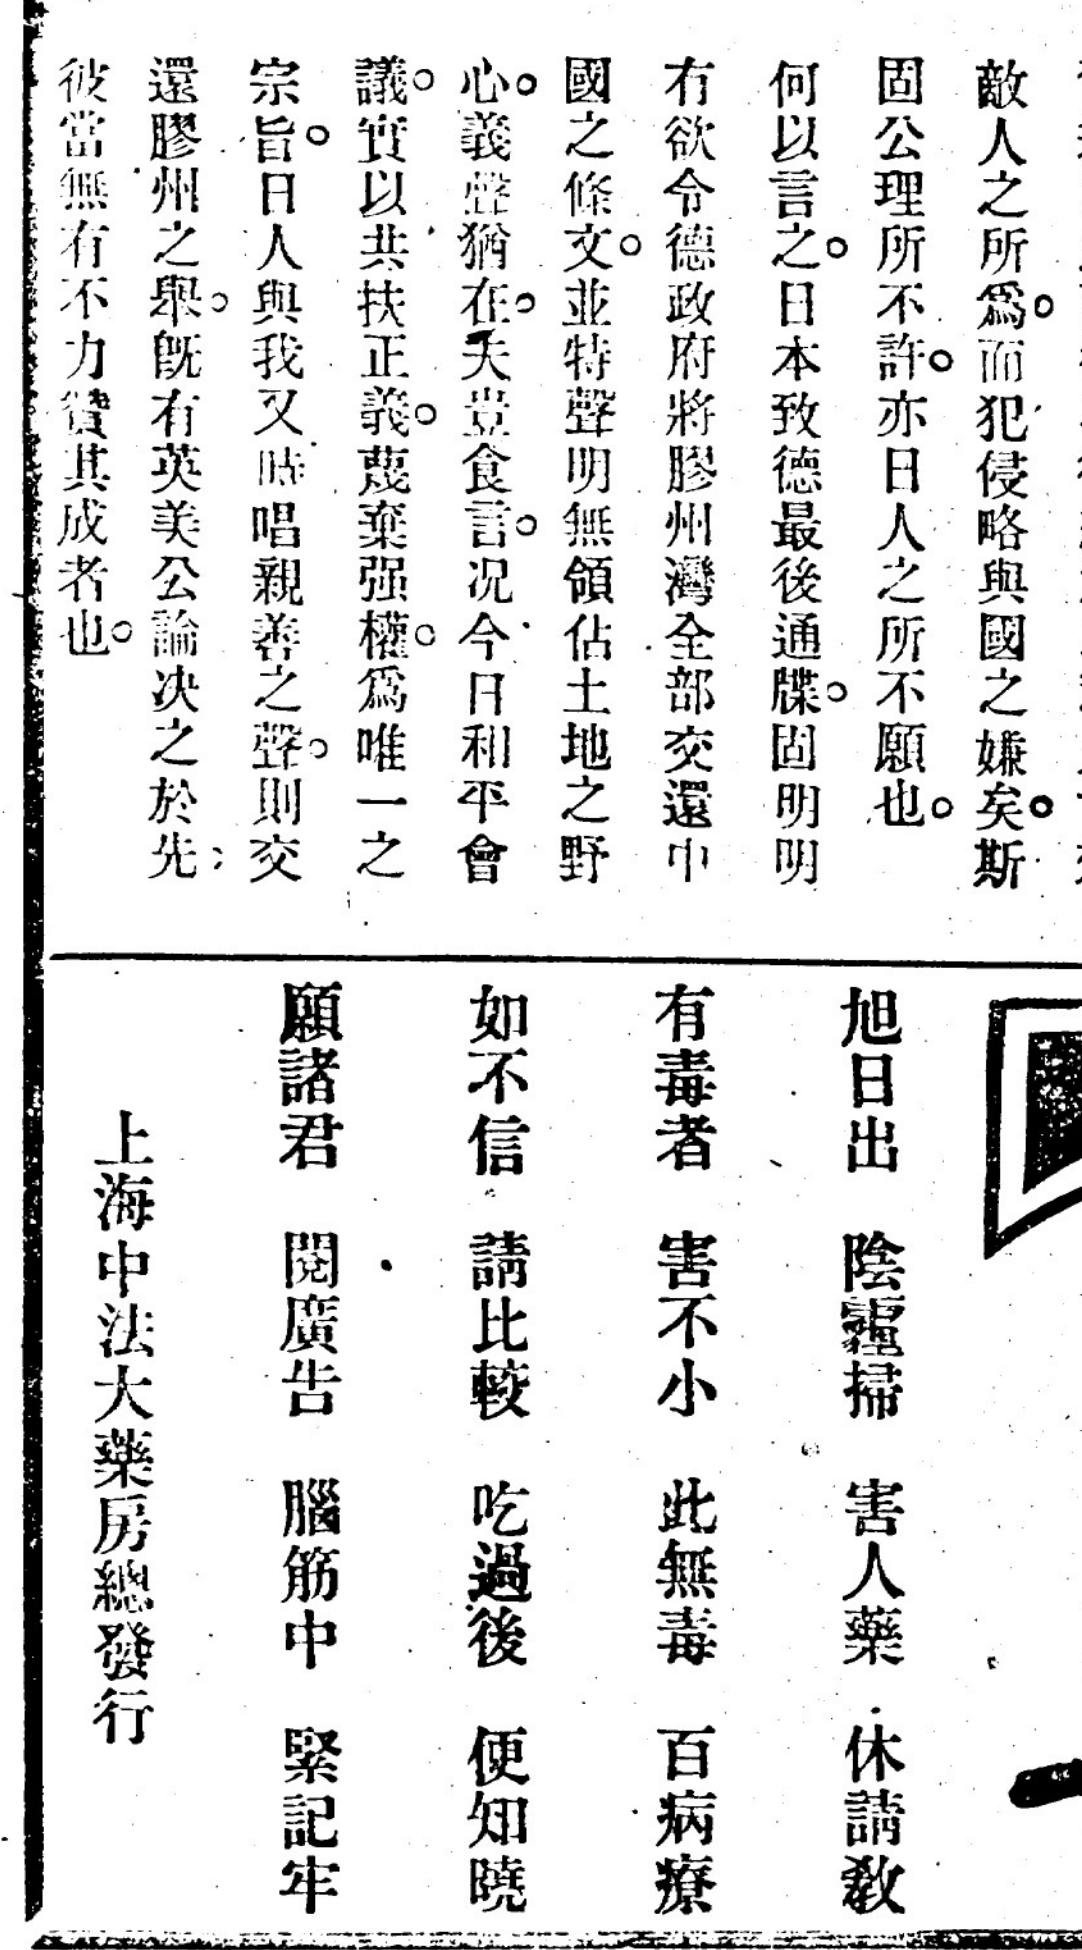 敵人之所爲。而犯侵略與國之嫌矣。斯
固公理所不許。亦日人之所不願也。
何以言之。日本致德最後通牒。固明明
有欲令德政府將膠州灣全部交還中
國之條文。並特聲明無領佔土地之野
心。義聲猶在。夫豈食言。况今日和平會
議。實以共扶正義。蔑棄强權。爲唯一之
宗旨。日人與我又時唱親善之聲。則交
還膠州之舉。旣有英美公論决之於先
彼當無有不力贊其成者也。
旭日出 陰霾掃 害人藥 休請教
有毒者 害不小 此無毒 百病療
如不信 請比較 吃過後 便知曉
願諸君 閱廣告 腦筋中 緊記牢
上海中法大藥房總發行